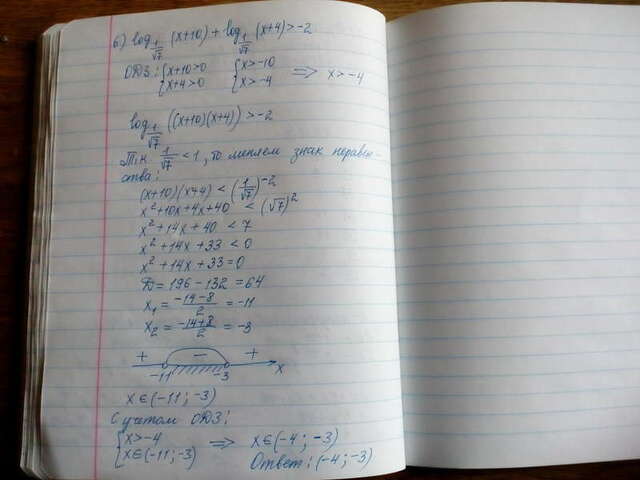 б) log_{1/√7} (x+10) + log_{1/√7} (x+4) > -2
ОДЗ: {x+10>0 {x>-10
{x+4>0 {x>-4 ⇒ x>-4
log_{1/√7} ((x+10)(x+4)) > -2
Т.к. 1/√7 < 1, то меняем знак неравен-
ства:
(x+10)(x+4) < (1/√7)^{-2}
x²+10x+4x+40 < (√7)²
x²+14x+40 < 7
x²+14x+33 < 0
x²+14x+33=0
D = 196-132 = 64
x₁ = (-14-8)/2 = -11
x₂ = (-14+8)/2 = -3
+ - +
-11 -3 x
x∈(-11; -3)
С учетом ОДЗ:
{x>-4 ⇒ x∈(-4; -3)
{x∈(-11;-3) Ответ: (-4; -3)